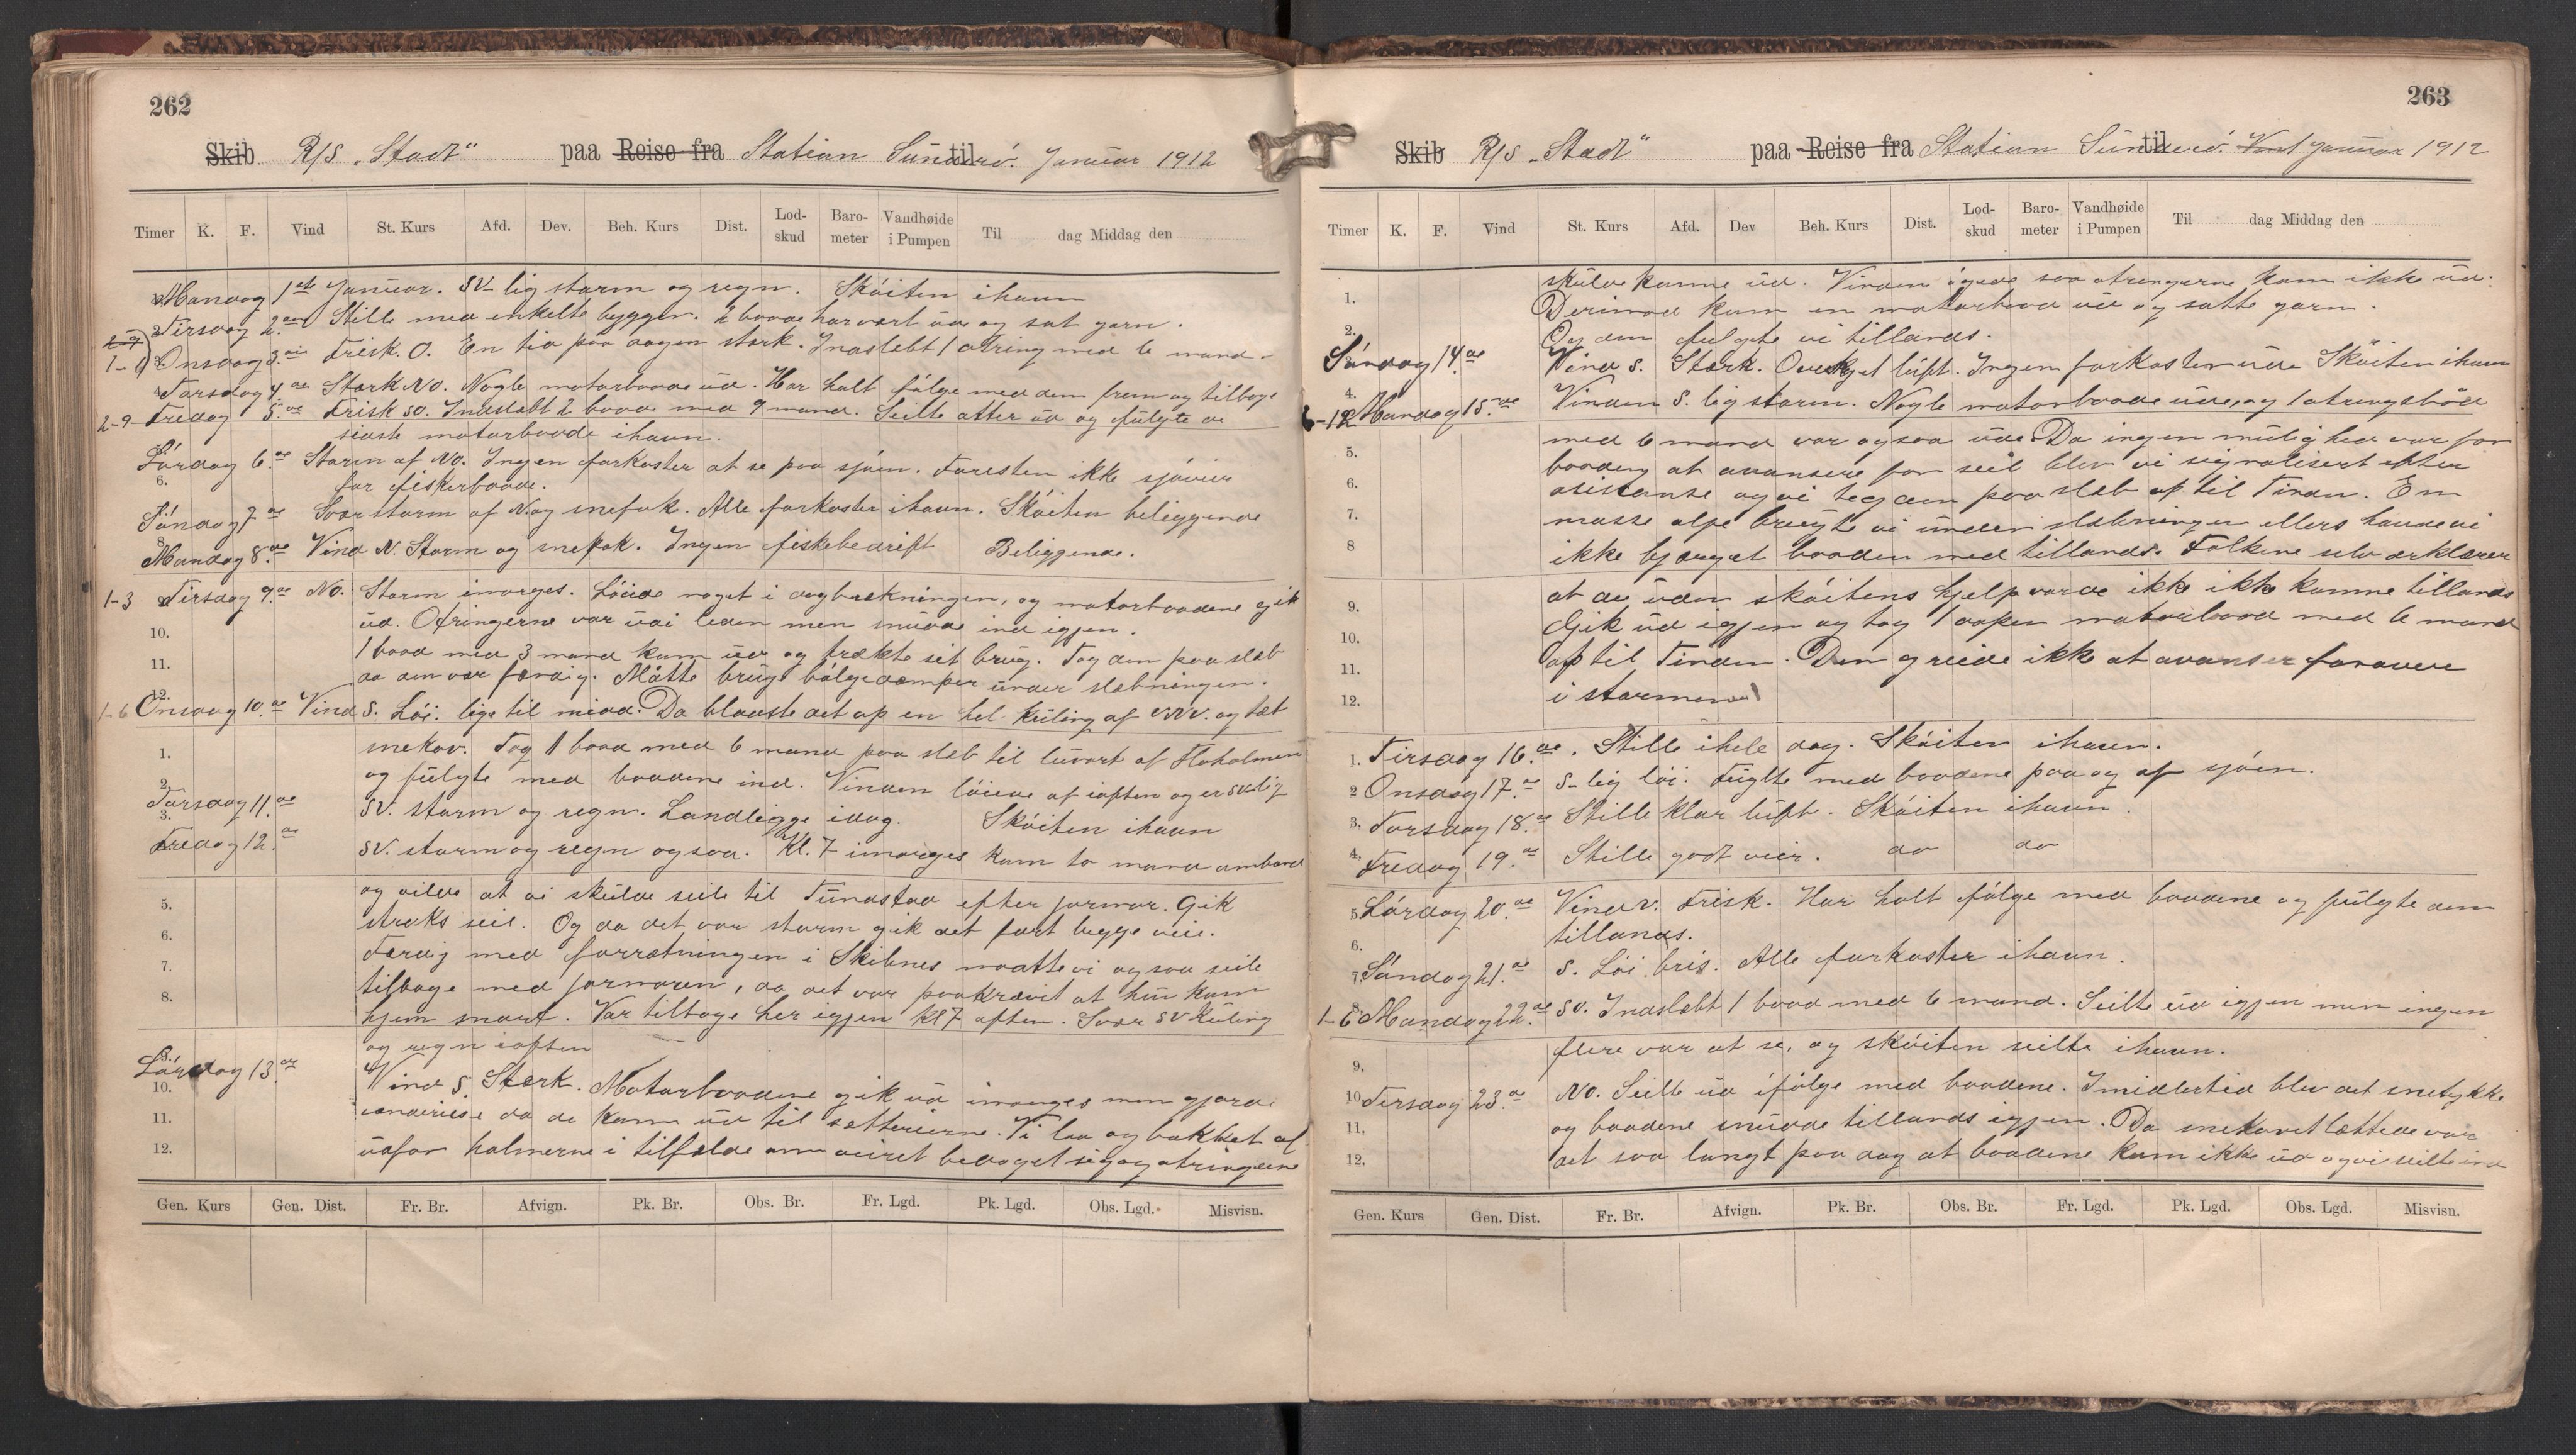 262
Skib R/S „Stadt“ paa Reise fra Station Sünderö. til Januar 1912
Timer K. F. Vind St. Kurs Afd. Dev. Beh. Kurs Dist. Lod-skud Baro-meter Vandhøide i Pumpen Til dag Middag den
Mandag 1ste Januar. SV-lig storm og regn. Sköiten ihavn
Tirsdag 2.den Stille med enkelte bygger. 2 baade har vært ude og sat garn.
1-6 Onsdag 3.die Frisk. O. En tid paa dagen stærk. Indslæbt 1 otring med 6 mand.
Torsdag 4.de Stærk NO. Nogle motorbaade ud. Har holt fölge med dem frem og tilbage
2-9 Fredag 5.de Frisk SO. Indslæbt 2 baade med 9 mand. Seilte atter ud og fulgte de
sidste motorbaade ihavn.
Lördag 6.de Storm af NO. Ingen farkoster at se paa sjöen. Foresten ikke sjöveir
6. for fiskerbaade.
Söndag 7.de Svær storm af N. og snefok. Alle farkoster ihavn. Sköiten beliggende
8. Mandag 8.de Vind N. Storm og snefok. Ingen fiskebedrift Beliggende.
1-3 Tirsdag 9.de NO. Storm imorges. Löiede noget i dagbrekningen, og motorbaadene gik
10. ud. Otringerne var udi leden men snudde ind igjen.
11. 1 baad med 3 mand kom ud og trækte sit brug. Tog den paa slæb
da den var færdig. Måtte bruge bölgedæmper under slæbningen.
12. 1-6 Onsdag 10.de Vind S. Löi. lige til midd. Da blaaste det op en hel kuling af VNV. og tæt
1. snekov. Tog 1 baad med 6 mand paa slæb til luvart af Hoholmen
2. og fulgte med baadene ind. Vinden löiede af iaften og er SVlig
3. Torsdag 11.de SV. storm og regn. Landligge idag. Sköiten ihavn
Fredag 12.de SV. storm og regn ogsaa. Kl. 7 imorges kom to mand ombord
5. og vilde at vi skulde seile til Tunastad efter jormor. Gik
6. straks seil. Og da det var storm gik det fort begge veie.
7. Færdig med forrætningen i Skibnes maatte vi ogsaa seile
8. tilbage med jormoren, da det var paakrævet at hun kom
hjem snart. Var tilbage her igjen kl 7 aften. Svær SV kuling
9. og regn iaften
Lördag 13.de Vind S. Stærk. Motorbaadene gik ud imorges men gjorde
10.
11. da de kom ud til sætterierne. Vi laa og bakket af
12. udfor holmerne i tilfælde om veiret bedaget sig og otringerne
Gen. Kurs Gen. Dist. Fr. Br. Afvign. Pk. Br. Obs. Br. Fr. Lgd. Pk. Lgd. Obs. Lgd. Misvisn.
263
Skib R/S „Stadt“ paa Reise fra Station Sünderö. til Januar 1912
Timer K. F. Vind St. Kurs Afd. Dev Beh. Kurs Dist. Lod-skud Baro-meter Vandhøide i Pumpen Til dag Middag den
skulde komme ud. Vinden ögede saa otringerne kom ikke ud.
1. Derimod kom en motorbaad ud og satte garn.
2. Og den fulgte vi tillands.
Söndag 14.de Vind S. Stærk. Overskyet luft. Ingen farkoster ude Sköiten ihavn
4. 1-12 Mandag 15.de Vinden S. lig storm. Nogle motorbaade ude, og 1 otringsbåd
5. med 6 mand var ogsaa ude. Da ingen mulighed var for
baaden at avansere for seil blev vi signalisert efter
6. asistanse og vi tog den paa slæb op til Tinden. En
7. masse olje brugte vi under slæbningen ellers havde vi
8 ikke bjærget baaden med tillands. Folkene selv ærklærer
9. at de uden sköitens hjelp vorde ikke ikke komme tillands
10. Gik ud igjen og tog 1 aapen motorbaad med 6 mand
11. op til Tinden. Den greide ikke at avanser forovere
12. i stormen
1. Tirsdag 16.de. Stille ihele dag. Sköiten ihavn.
2 Onsdag 17.de S-lig löi. Fuglte med baadene paa og af sjöen.
3. Torsdag 18.de Stille klar luft. Sköiten ihavn.
4. Fredag 19.de Stille godt veir. do do
5 Lördag 20.de Vind V. Frisk. Har holt fölge med baadene og fulgte dem
6. tillands.
7 Söndag 21.de S. Löi bris. Alle farkoster ihavn.
8 1-6 Mandag 22.de SO. Indslæbt 1 baad med 6 mand. Seilte ud igjen men ingen
9. flere var at se, og sköiten seilte ihavn.
10 Tirsdag 23.de NO. Seilte ud ifölge med baadene. Imidlertid blev det snetykke
11. og baadene snudde tillands igjen. Da snekovet lættede var
12. det saa langt paa dag at baadene kom ikke ud og vi seilte ind
Gen. Kurs Gen. Dist. Fr. Br. Afvign. Pk. Br. Obs. Br. Fr. Lgd. Pk. Lgd. Obs. Lgd. Misvisn.